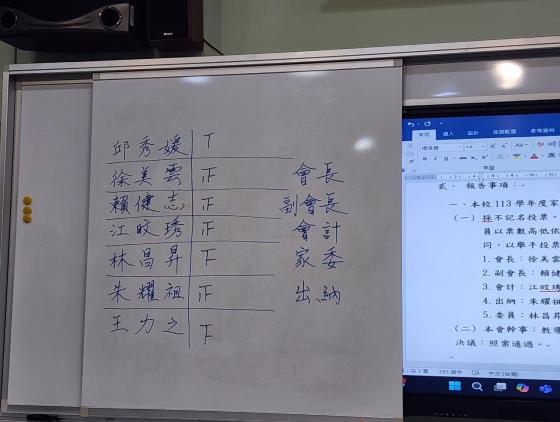 邱秀媛 T
徐美雲 正 會長
賴健志 正 副會長
江旼琇 正 會計
林昌昇 下 家委
朱耀祖 正 出納
王力之 下
常用 插入 設計 版面配置 參考資料
貳、報告事項：
一、本校 113 學年度家
（一）採不記名投票，
員以票數高低依
同，以舉手投票
1. 會長：徐美雲
2. 副會長：賴健
3. 會計：江旼琇
4. 出納：朱耀祖
5. 委員：林昌昇
（二）本會幹事：教導
決議：照案通過。
395 個字 中文 (台灣)